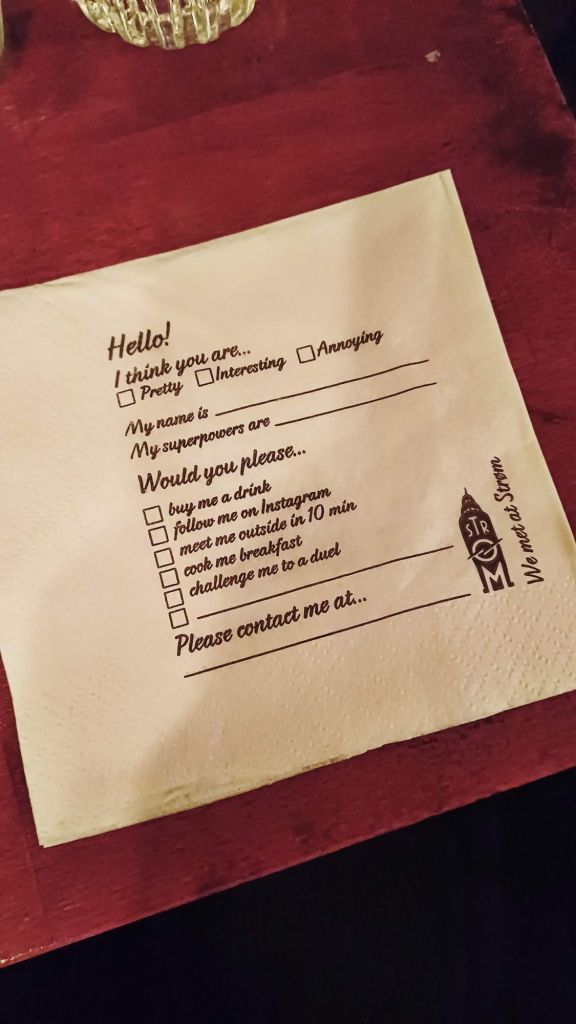 Hello!
I think you are...
Pretty Interesting Annoying
My name is
My superpowers are
Would you please...
buy me a drink
follow me on Instagram
meet me outside in 10 min
cook me breakfast
challenge me to a duel
Please contact me at...
STR
ØM
We met at Strøm